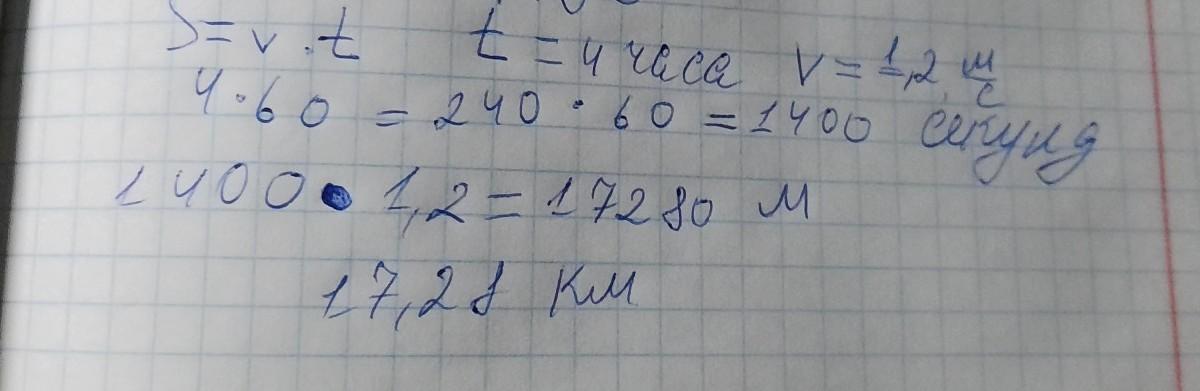 S = v · t t = 4 часа v = 1,2 м/с
4 · 60 = 240 · 60 = 1400 секунд
1400 · 1,2 = 17280 м
17,28 км